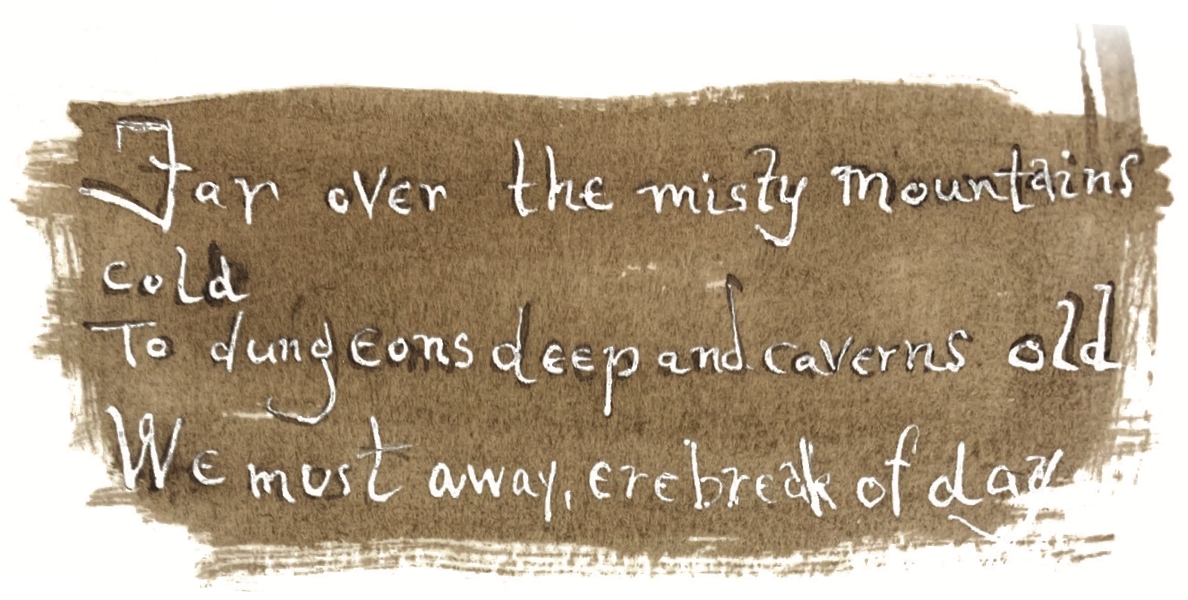 Far over the misty mountains
cold
To dungeons deep and caverns old
We must away, ere break of day